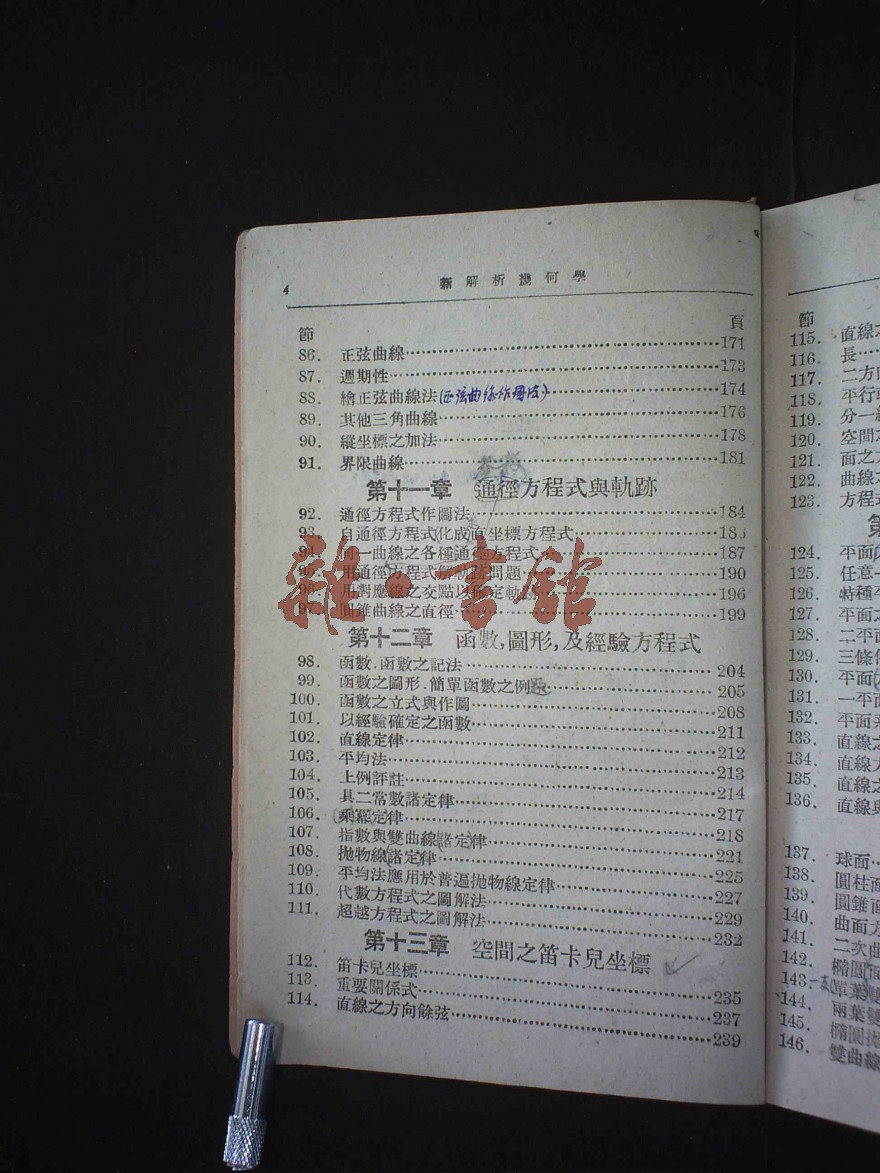 4
新解析幾何學
節 頁
86. 正弦曲線 171
87. 週期性 173
88. 繪正弦曲線法(正弦曲線作图法) 174
89. 其他三角曲線 176
90. 縱坐標之加法 178
91. 界限曲線 181
第十一章 通徑方程式與軌跡
92. 通徑方程式作圖法 184
93. 自通徑方程式化成直坐標方程式 185
94. 同一曲線之各種通徑方程式 187
95. 用通徑方程式解軌跡問題 190
96. 用對應線之交點以確定軌跡 196
97. 圓錐曲線之直徑 199
第十二章 函數,圖形,及經驗方程式
98. 函數.函數之記法 204
99. 函數之圖形.簡單函數之例 205
100. 函數之立式與作圖 208
101. 以經驗確定之函數 211
102. 直線定律 212
103. 平均法 213
104. 上例評註 214
105. 具二常數諸定律 217
106. 乘冪定律 218
107. 指數與雙曲線諸定律 221
108. 拋物線諸定律 225
109. 平均法應用於普遍拋物線定律 227
110. 代數方程式之圖解法 229
111. 超越方程式之圖解法 232
第十三章 空間之笛卡兒坐標
112. 笛卡兒坐標 235
113. 重要關係式 237
114. 直線之方向餘弦 239
節
115. 直線之
116. 長
117. 二方
118. 平行
119. 分一
120. 空間之
121. 面之方
122. 曲線之
123. 方程式
第
124. 平面
125. 任意一
126. 特種平
127. 平面之
128. 二平面
129. 三條件
130. 平面
131. 一平面
132. 平面系
133. 直線之
134. 直線
135 直線之
136. 直線與
137. 球面
138. 圓柱面
139. 圓錐面
140. 曲面方
141. 二次曲
142. 橢圓面
143. 單葉雙
144. 兩葉雙
145. 橢圓拋
146. 雙曲線
雜·書館